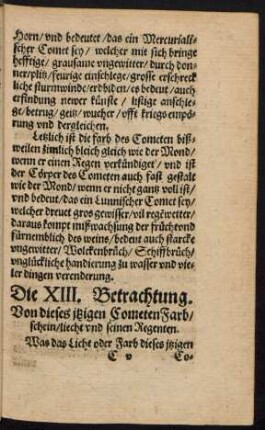 Horn/ vnd bedeutet/ das ein Mercuriali-
scher Comet sey/ welcher mit sich bringe
hefftige/ grausame vngewitter/ durch don-
ner/ plitz/ feurige einschlege/ grosse erschreck
liche sturmwinde/ erdbiden/ es bedeut/ auch
erfindung newer künste/ listige anschle-
ge/ betrug/ geitz/ wucher/ offt kriegs empö-
rung vnd dergleichen.
Letzlich ist die farb des Cometen biß-
weilen zimlich bleich gleich wie der Mond/
wenn er einen Regen verkündiget/ vnd ist
der Cörper des Cometen auch fast gestalt
wie der Mond/ wenn er nicht gantz voll ist/
vnd bedeut/ das ein Lunnischer Comet sey/
welcher drewet gros gewisser/ vil regēwetter/
daraus kompt mißwachsung der früchte vnd
fürnemblich des weins/ bedeut auch starcke
vngewitter/ Wolckenbrüch/ Schiffbrüch/
vnglückliche handierung zu wasser vnd vie-
ler dingen verenderung.
Die XIII. Betrachtung.
Von dieses itzigen Cometen Farb/
schein/ liecht vnd seinen Regenten.
Was das Licht oder Farb dieses itzigen
C v Co-